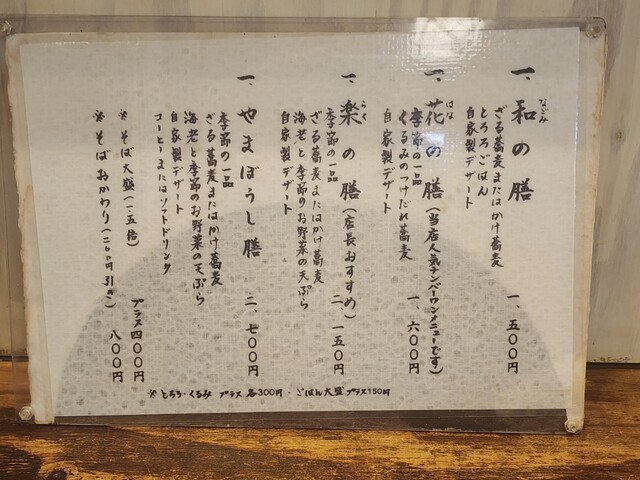 一、和の膳
なごみ
ざる蕎麦またはかけ蕎麦
とろろごはん
自家製デザート
一、五〇〇円
一、花の膳(当店人気ナンバーワンメニューです)
はな
季節の一品
くるみのつけだれ蕎麦
自家製デザート
一、六〇〇円
一、楽の膳(店長おすすめ)
らく
季節の一品
ざる蕎麦またはかけ蕎麦
海老と季節のお野菜の天ぷら
自家製デザート
二、一五〇円
一、やまぼうし膳
季節の一品
ざる蕎麦またはかけ蕎麦
海老と季節のお野菜の天ぷら
自家製デザート
コーヒーまたはソフトドリンク
二、七〇〇円
※そば大盛(一.五倍) プラス四〇〇円
※そばおかわり(二〇〇円引き) 八〇〇円
※とろろ・くるみ プラス 各300円・ごはん大盛 プラス150円